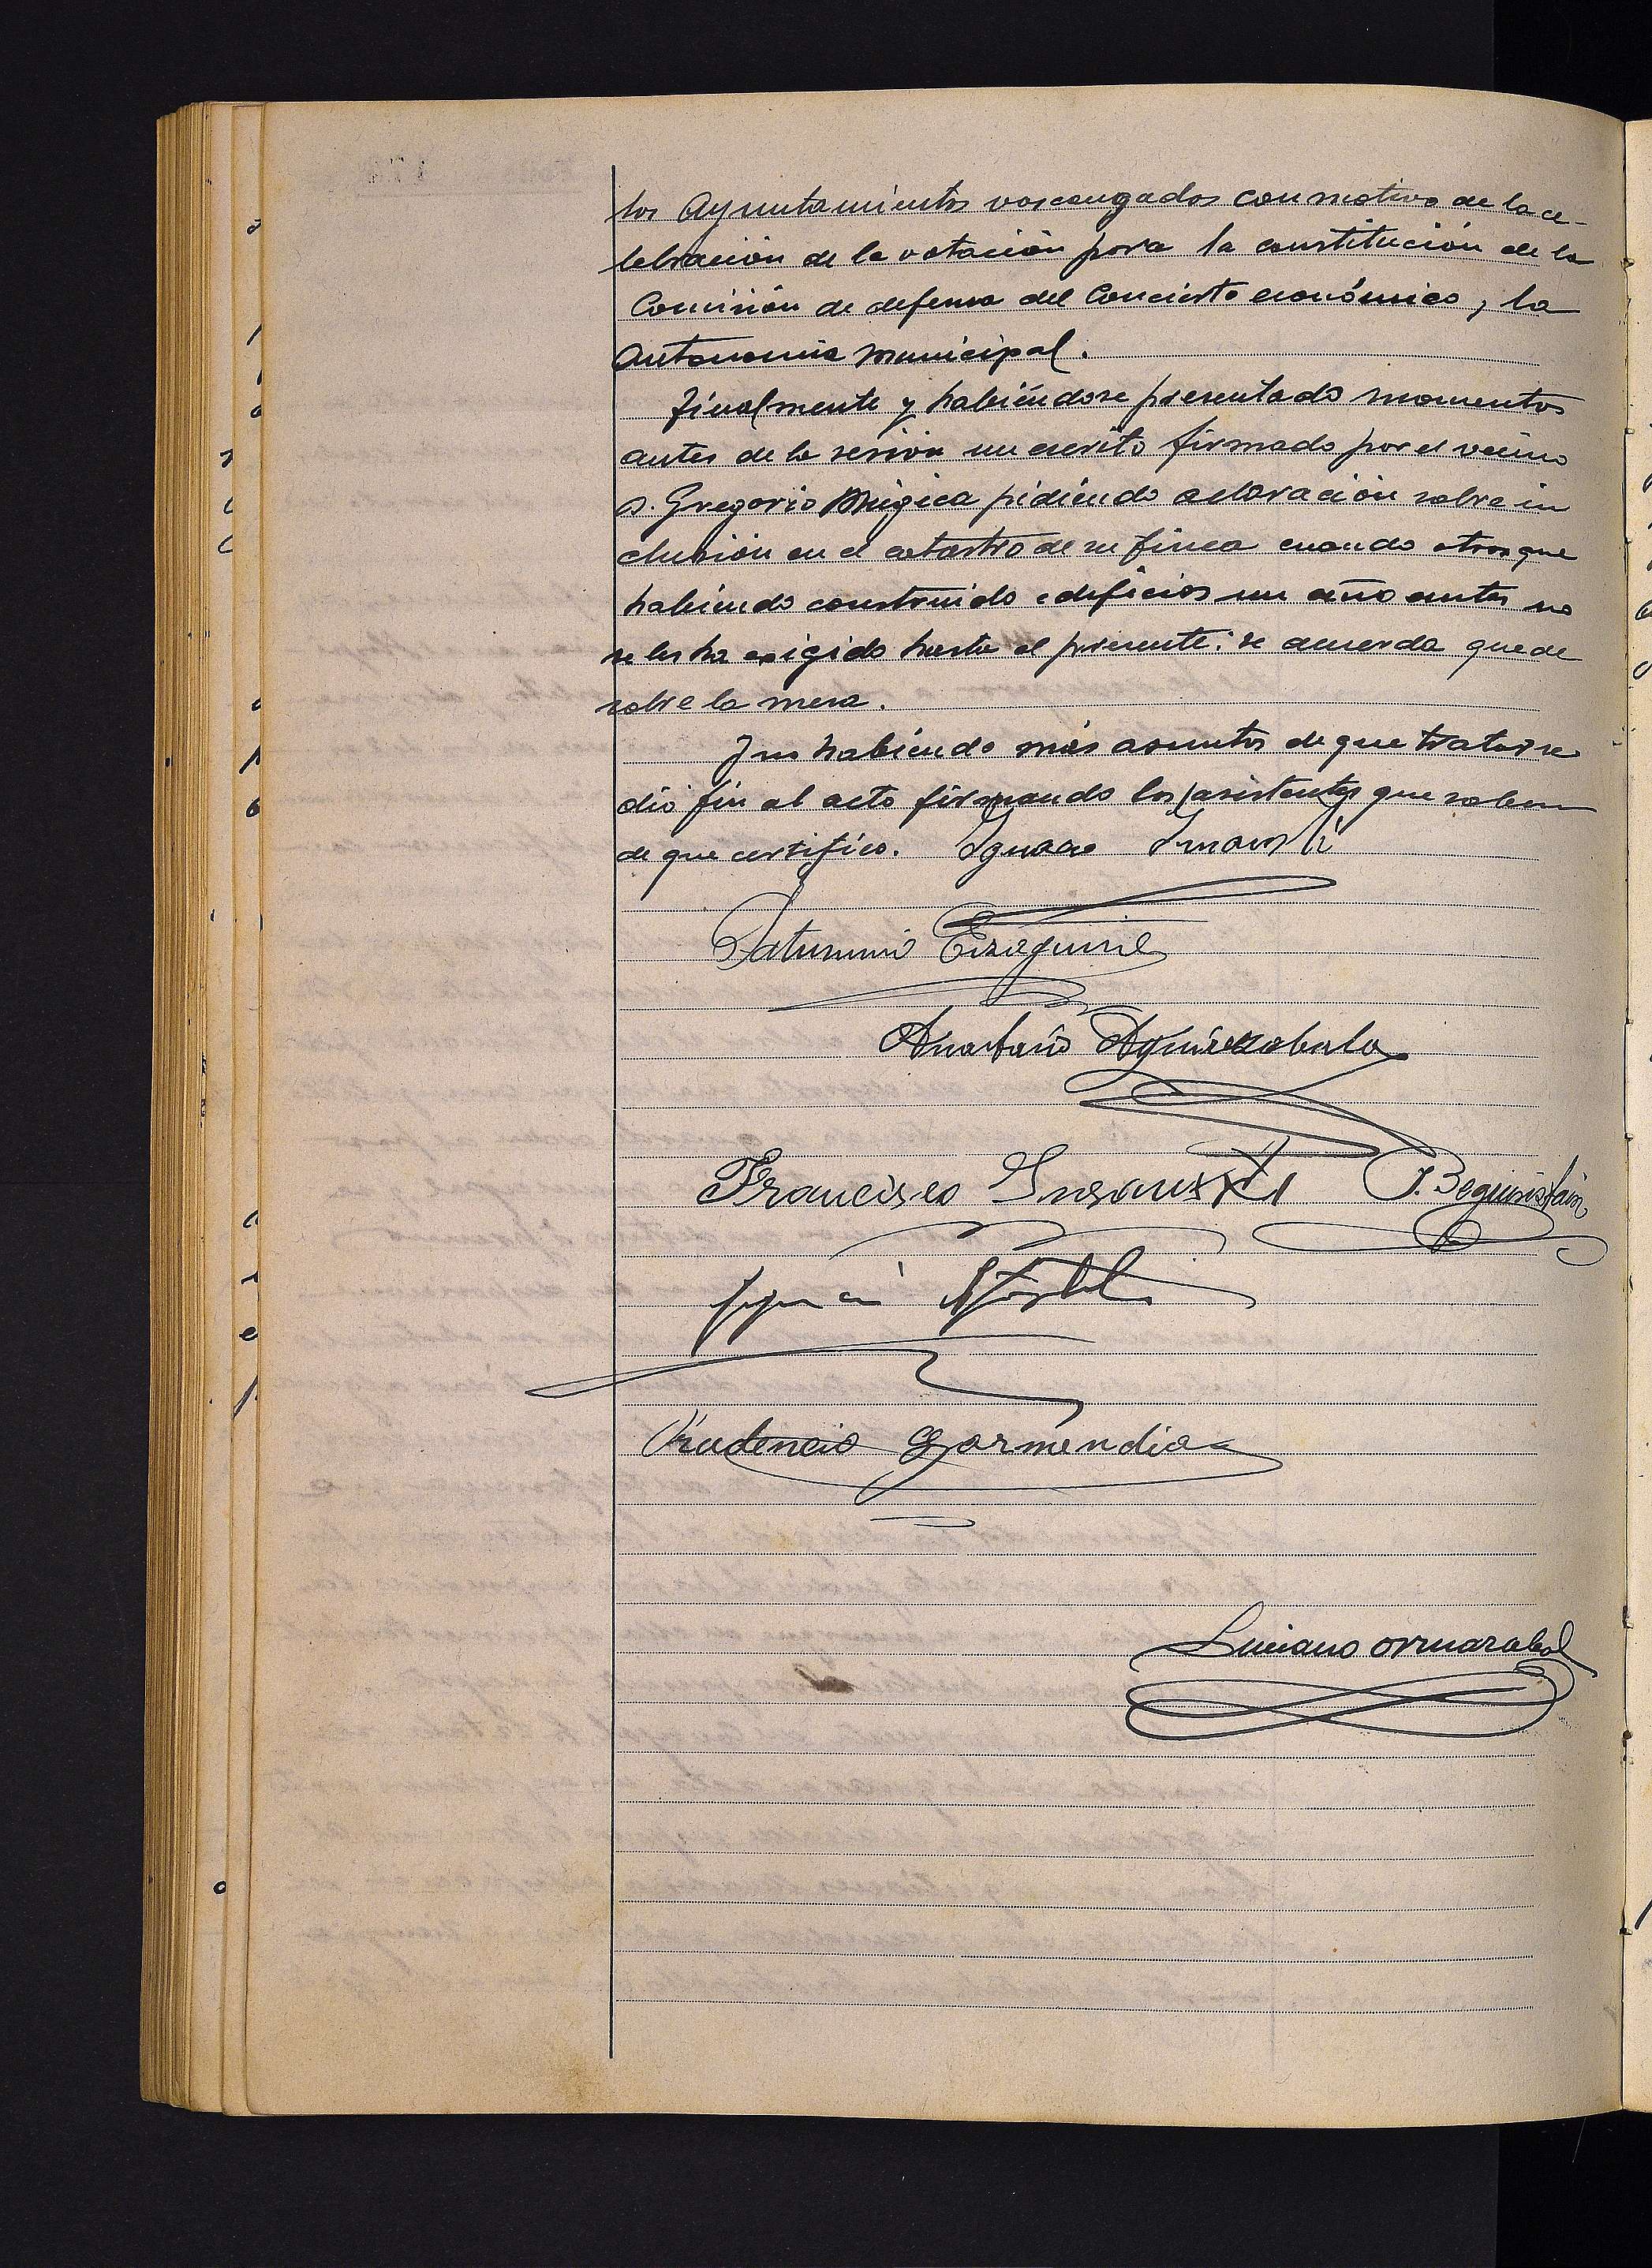 los Ayuntamientos vascongados con motivo de la ce-
lebración de la votación para la constitución de la
Comisión de defensa del Concierto económico, la
autonomia municipal.
Finalmente y habiéndose presentado momentos
antes de la sesión un escrito firmado por el vecino
D. Gregorio Mugica pidiendo aclaración sobre in
clusión en el catastro de su finca cuando otros que
habiendo construido edificios un año antes no
se les ha exigido hasta el presente: se acuerda quede
sobre la mesa.
Y no habiendo más asuntos de que tratar se
dió fin al acto firmando los asistentes que saben
de que certifico. Ignacio Insausti
Saturnino Eizaguirre
Anastasio Aguirrezabala
Francisco Insausti J. Beguiristain
Prudencio Garmendia
Luciano Ormazabal